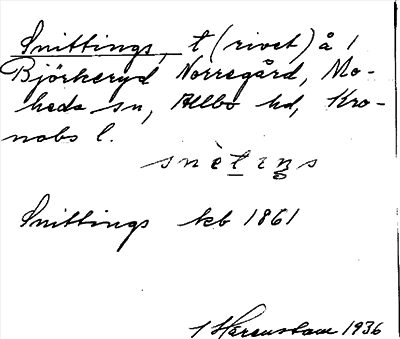 Snittings, t (rivet) å 1
Björkeryd Norregård, Mo-
heda sn, Allbo hd, Kro-
nobs l.
snètɪŋs
Snittings kb 1861
1936